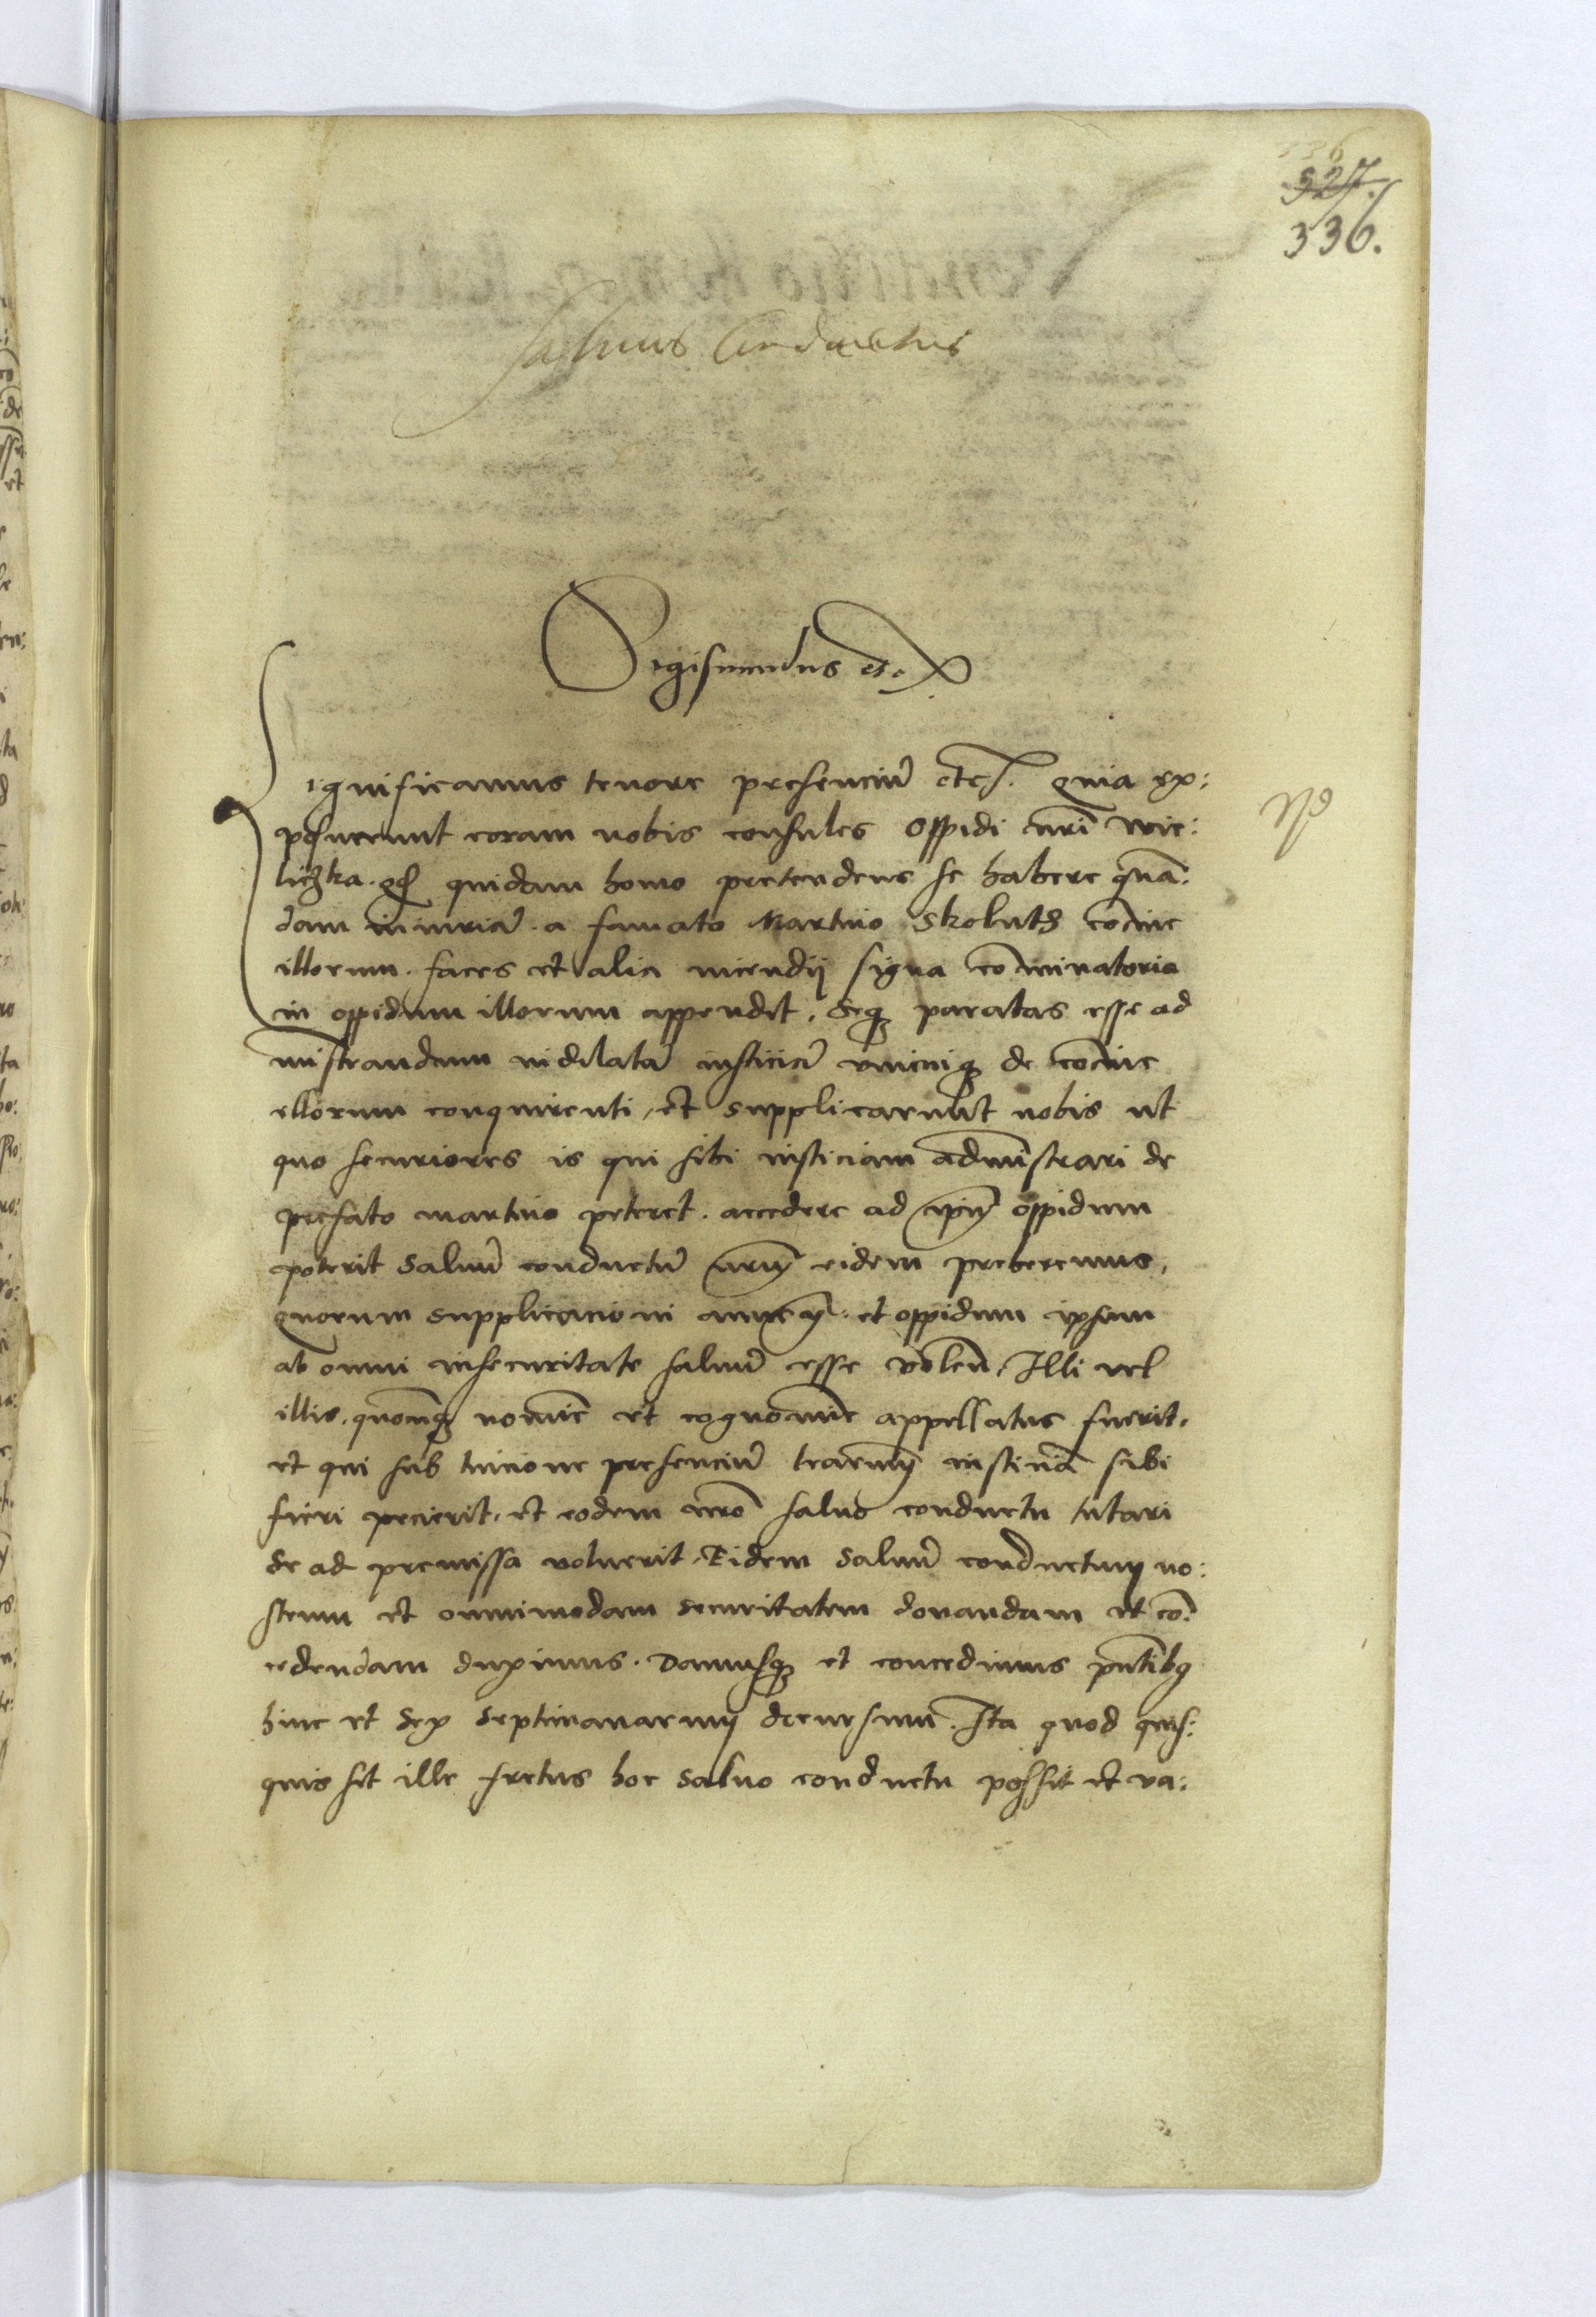 336
327.
336.
Salvus Conductus
Sigismundus etc
Significamus tenore presenciũ etc. quia ex:
posuerunt coram nobis consules oppidi nrĩ Wie:
liczka. qd quidam homo pretendens se habere quã:
dam iniuriã. a famato Martino Skoluth concive
illorum. faces et alia incendij signa cõminatoria
in oppidum illorum appendit. Seqz paratas esse ad
mĩstrandum indilatã iusticiã unicuiqz de concive
illorum conquirenti, et supplicarunt nobis ut
quo securiores is qui sibi iusticiam admĩstrari de
prefato martino peteret. accedere ad ipm oppidum
poterit salvũ conductũ nrm eidem preberemus,
quorum supplicacioni annuentes et oppidum ipsum
ab omni insecuritate salvũ esse volen. Illi vel
illis. quocũqz nomine et cognomine appellatus fuerit.
et qui sub tuicione presenciũ lrarum iusticiã sibi
fieri pecierit. et eodem nrõ salvo conductu tutari
se ad premissa voluerit. Eidem salvũ conductum no:
strum et omnimodam securitatem donandam et cõ:
cedendam duximus. Damusqz et concedimus pñtibg
hinc et sex septimanarum decursum. Ita quod quis:
quis sit ille fretus hoc salvo conductu possit et va: